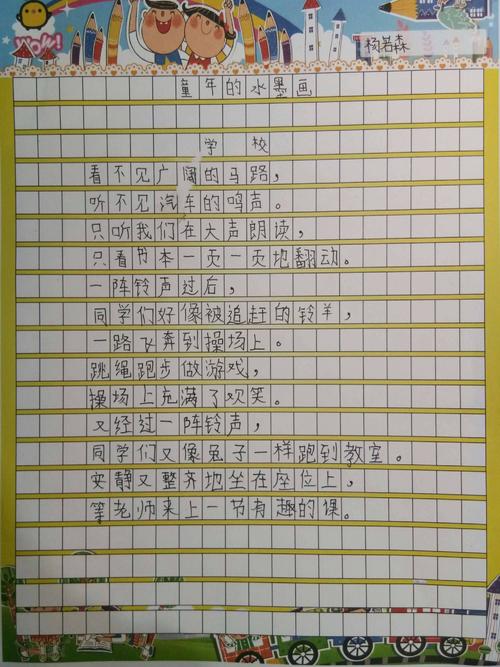 WOW!
杨若森
童年的水墨画
学校
看不见广阔的马路，
听不见汽车的鸣声。
只听我们在大声朗读，
只看书本一页一页地翻动。
一阵铃声过后，
同学们好像被追赶的铃羊，
一路飞奔到操场上。
跳绳跑步做游戏，
操场上充满了欢笑。
又经过一阵铃声，
同学们又像兔子一样跑到教室。
安静又整齐地坐在座位上，
等老师来上一节有趣的课。